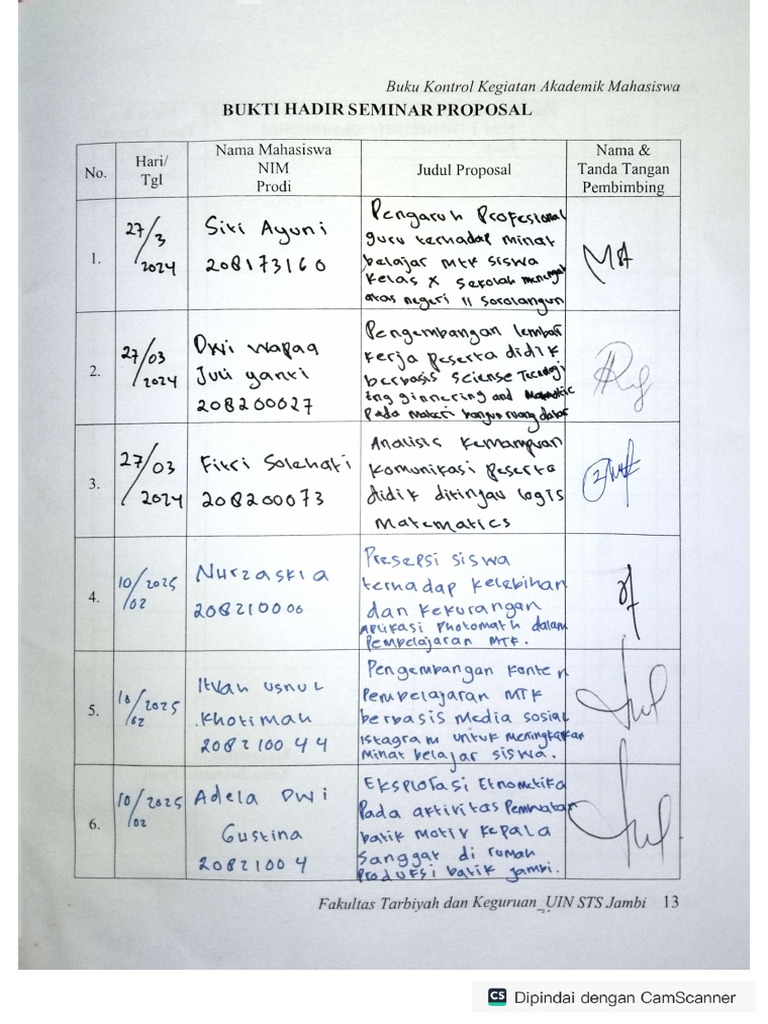 Buku Kontrol Kegiatan Akademik Mahasiswa
BUKTI HADIR SEMINAR PROPOSAL
No.
Hari/
Tgl
Nama Mahasiswa
NIM
Prodi
Judul Proposal
Nama &
Tanda Tangan
Pembimbing
1.
27/3
2024
Siti Ayuni
208173160
Pengaruh Profesional
guru terhadap minat
belajar MTK siswa
Kelas X Sekolah menengah
atas negeri 11 Sorolangun
2.
27/03
2024
Dwi wapaq
Juli yanti
208200027
Pengembangan lembar
kerja peserta didik
berbasis Sciense Tecnologi
Enginnering and
Pada materi bangun ruang datar
3.
27/03
2024
Fitri Solehati
208200073
Analisis kemampuan
Komunikasi peserta
didik ditinjau logis
Matematics
4.
10/2025
/02
Nurzaskia
208210006
Presepsi siswa
terhadap kelebihan
dan kekurangan
Aplikasi Photomath dalam
Pembelajaran MTK.
5.
10/2025
/02
Itvah usnul
Khotimah
208210044
Pengembangan konten
Pembelajaran MTK
berbasis Media sosial
Istagram untuk meningkatkan
Minat belajar siswa.
6.
10/2025
/02
Adela Dwi
Gustina
20821004
Eksplorasi Etnometika
Pada aktivitas Pembuatan
batik motiv kepala
Sanggat di rumah
Produksi batik jambi.
Fakultas Tarbiyah dan Keguruan_UIN STS Jambi 13
CS Dipindai dengan CamScanner